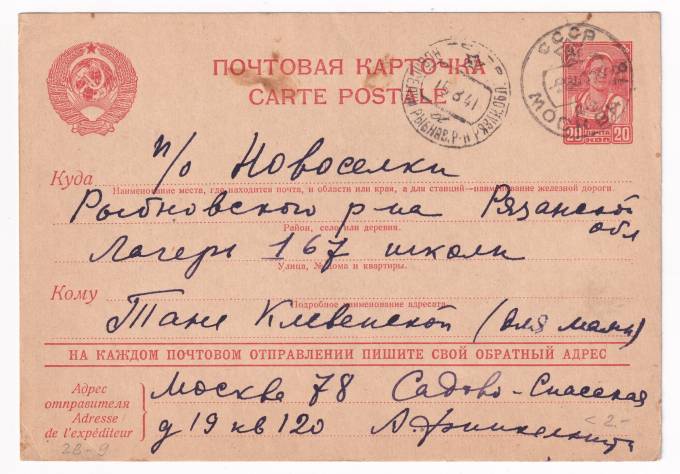 ПОЧТОВАЯ КАРТОЧКА
CARTE POSTALE
СССР
МОСКВА
ПОЧТА
20 КОП 20
Куда п/о Новоселки
Наименование места, где находится почта, и области или края, а для станций—наименование железной дороги.
Рыбновского р-на Рязанской обл
Район, село или деревня.
Лагерь 167 школы
Улица, № дома и квартиры.
Кому
Подробное наименование адресата.
Тане Клевенской (для мамы)
НА КАЖДОМ ПОЧТОВОМ ОТПРАВЛЕНИИ ПИШИТЕ СВОЙ ОБРАТНЫЙ АДРЕС
Адрес отправителя
Adresse de l'expéditeur
Москва 78 Садово-Спасская
д 19 кв 120
2В-9
<2-